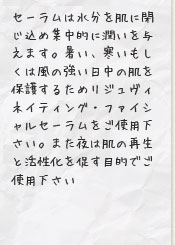 セーラムは水分を肌に閉
じ込め集中的に潤いを与
えます。暑い、寒いもし
くは風の強い日中の肌を
保護するためリジュヴィ
ネイティング・ファイシ
ャルセーラムをご使用下
さい。また夜は肌の再生
と活性化を促す目的でご
使用下さい